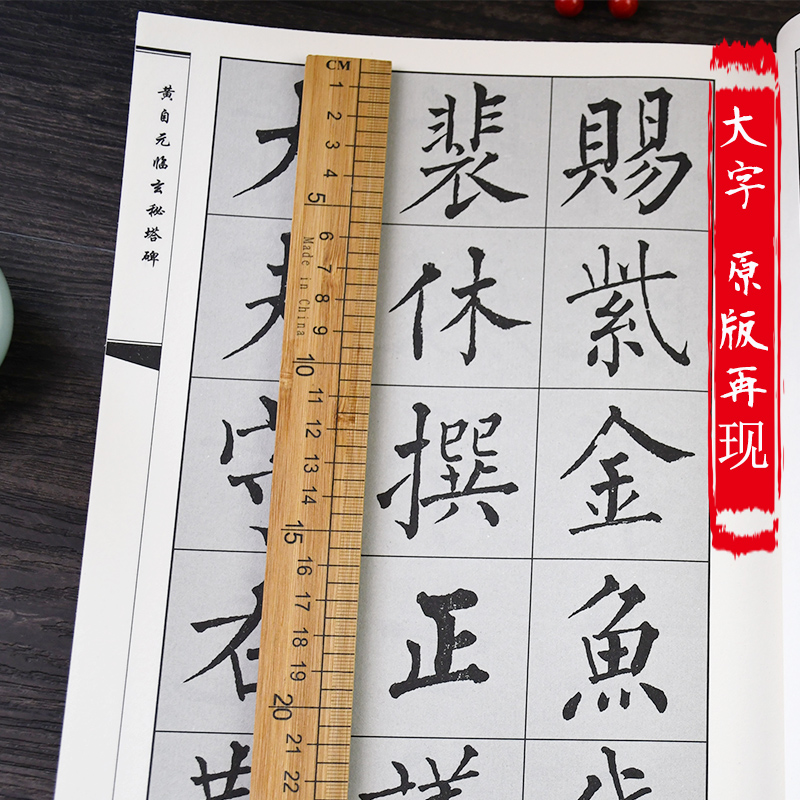 黄自元临玄秘塔碑
賜紫金魚
裴休撰正
CM
1 2 3 4 5 6 7 8 9 10 11 12 13 14 15 16 17 18 19 20 21 22
Made in China
大字 原版再现